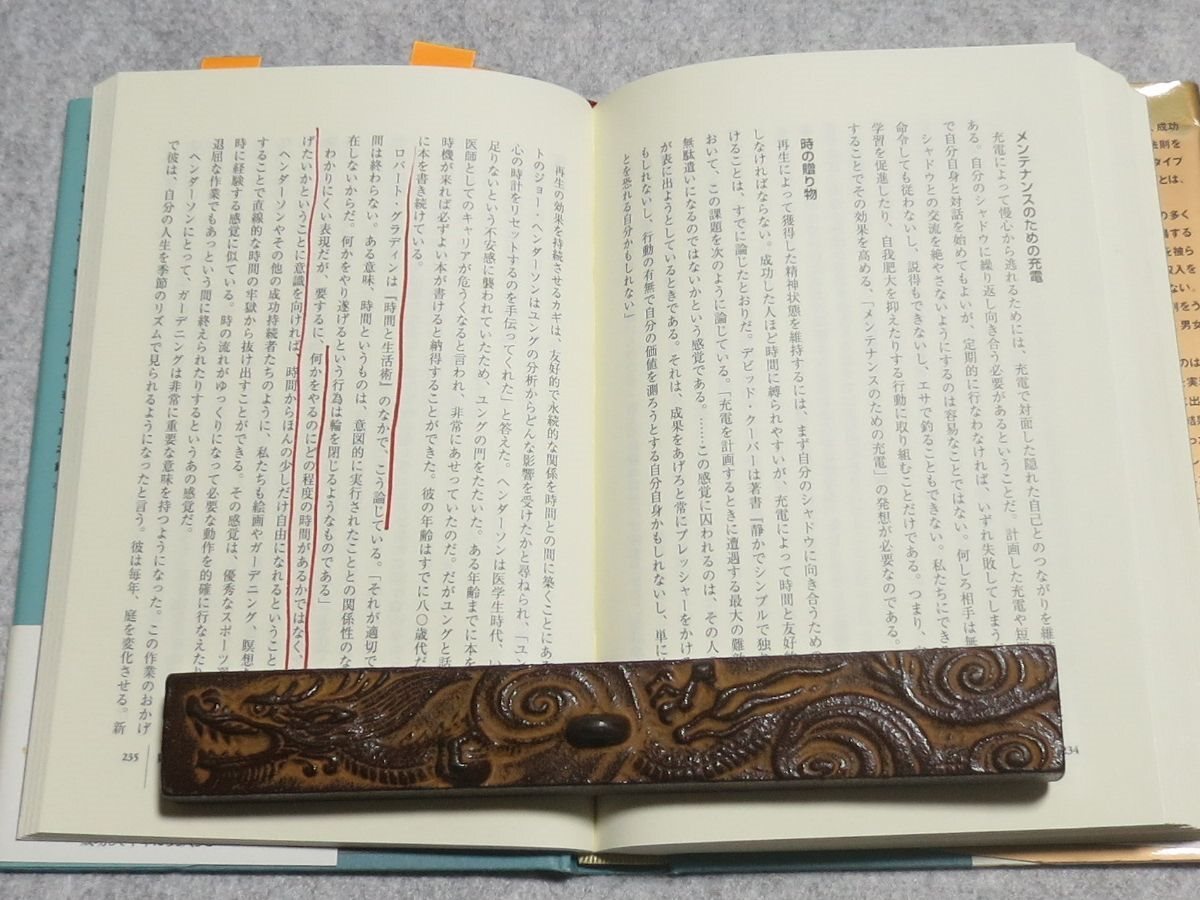 メンテナンスのための充電
充電によって慢心から逃れるためには、充電で対面した隠れた自己とのつながりを維
ある。自分のシャドウに繰り返し向き合う必要があるということだ。計画した充電や短
で自分自身と対話を始めてもよいが、定期的に行なわなければ、いずれ失敗してしまう
シャドウとの交流を絶やさないようにするのは容易なことではない。何しろ相手は無
命令しても従わないし、説得もできないし、エサで釣ることもできない。私たちにでき
学習を促進したり、自我肥大を抑えたりする行動に取り組むことだけである。つまり、
することでその効果を高める、「メンテナンスのための充電」の発想が必要なのである。
時の贈り物
再生によって獲得した精神状態を維持するには、まず自分のシャドウに向き合うため
しなければならない。成功した人ほど時間に縛られやすいが、充電によって時間と友好的
けることは、すでに論じたとおりだ。デビッド・クーパーは著書『静かでシンプルで独
において、この課題を次のように論じている。「充電を計画するときに遭遇する最大の難
無駄遣いになるのではないかという感覚である。……この感覚に囚われるのは、その人
が表に出ようとしているときである。それは、成果をあげろと常にプレッシャーをかけ
もしれないし、行動の有無で自分の価値を測ろうとする自分自身かもしれないし、単に
とを恐れる自分かもしれない」
234
再生の効果を持続させるカギは、友好的で永続的な関係を時間との間に築くことにあ
トのジョー・ヘンダーソンはユングの分析からどんな影響を受けたかと尋ねられ、「ユン
心の時計をリセットするのを手伝ってくれた」と答えた。ヘンダーソンは医学生時代、い
足りないという不安感に襲われていたため、ユングの門をたたいた。ある年齢までに本を
医師としてのキャリアが危うくなると言われ、非常にあせっていたのだ。だがユングと話
時機が来れば必ずよい本が書けると納得することができた。彼の年齢はすでに八〇歳代だ
に本を書き続けている。
ロバート・グラディンは『時間と生活術』のなかで、こう論じている。「それが適切で
間は終わらない。ある意味、時間というものは、意図的に実行されたこととの関係性のな
在しないからだ。何かをやり遂げるという行為は輪を閉じるようなものである」
わかりにくい表現だが、要するに、何かをやるのにどの程度の時間があるかではなく、
げたいかということに意識を向ければ、時間からほんの少しだけ自由になれるということ
ヘンダーソンやその他の成功持続者たちのように、私たちも絵画やガーデニング、瞑想
することで直線的な時間の牢獄から抜け出すことができる。その感覚は、優秀なスポーツ
時に経験する感覚に似ている。時の流れがゆっくりになって必要な動作を的確に行なえたり
退屈な作業でもあっという間に終えられたりするというあの感覚だ。
ヘンダーソンにとって、ガーデニングは非常に重要な意味を持つようになった。この作業のおかげ
で彼は、自分の人生を季節のリズムで見られるようになったと言う。彼は毎年、庭を変化させる。新
235